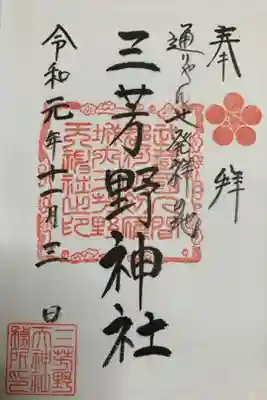 奉拝
通りゃんせ発祥の地
三芳野神社
令和元年十一月三日
三芳野
天神社
務所印